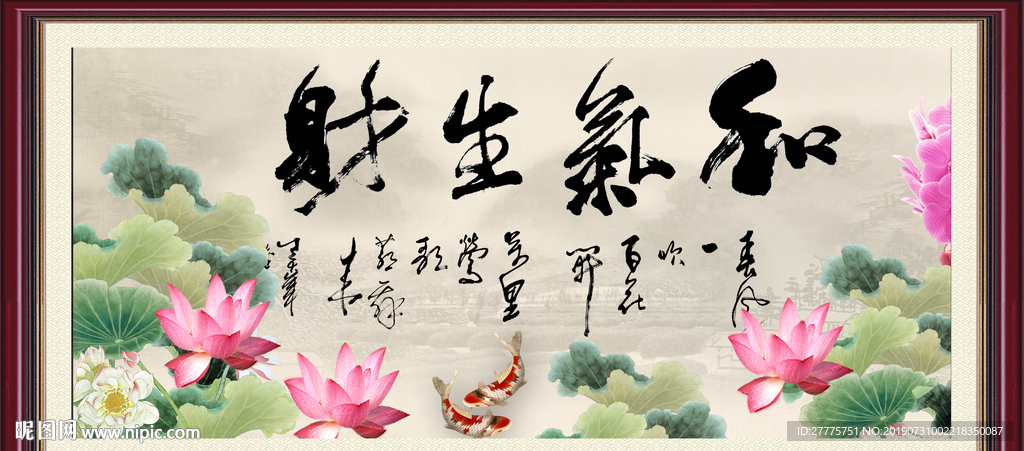 和氣生財
春風一吹百花開萬里鶯歌燕舞來
昵图网 www.nipic.com
ID:27775751 NO:20190731002218350087